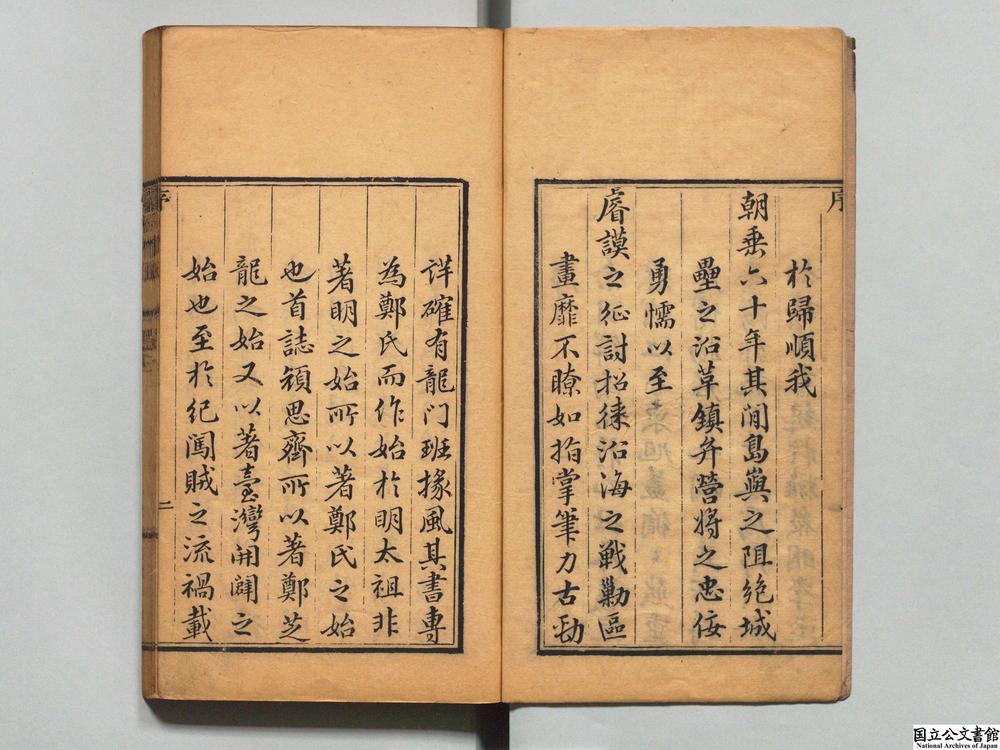 序
於歸順我
朝垂六十年其間島嶼之阻絶城
壘之沿革鎮弁營將之忠佞
勇懦以至
睿謨之征討招徠沿海之戰勦區
畫靡不瞭如指掌筆力古勁
詳確有龍门班掾風其書專
為鄭氏而作始於明太祖非
著明之始所以著鄭氏之始
也首誌顏思齊所以著鄭芝
龍之始又以著臺灣開闢之
始也至於紀闖賊之流禍載
序
二
国立公文書館
National Archives of Japan